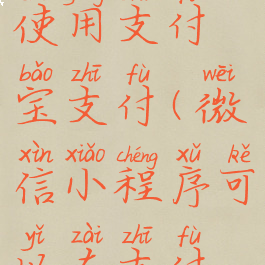 使用支付
bǎo zhī fù wēi
宝支付(微
xìn xiǎo chéng xù kě
信小程序可
yǐ zài zhī fù
以在支付